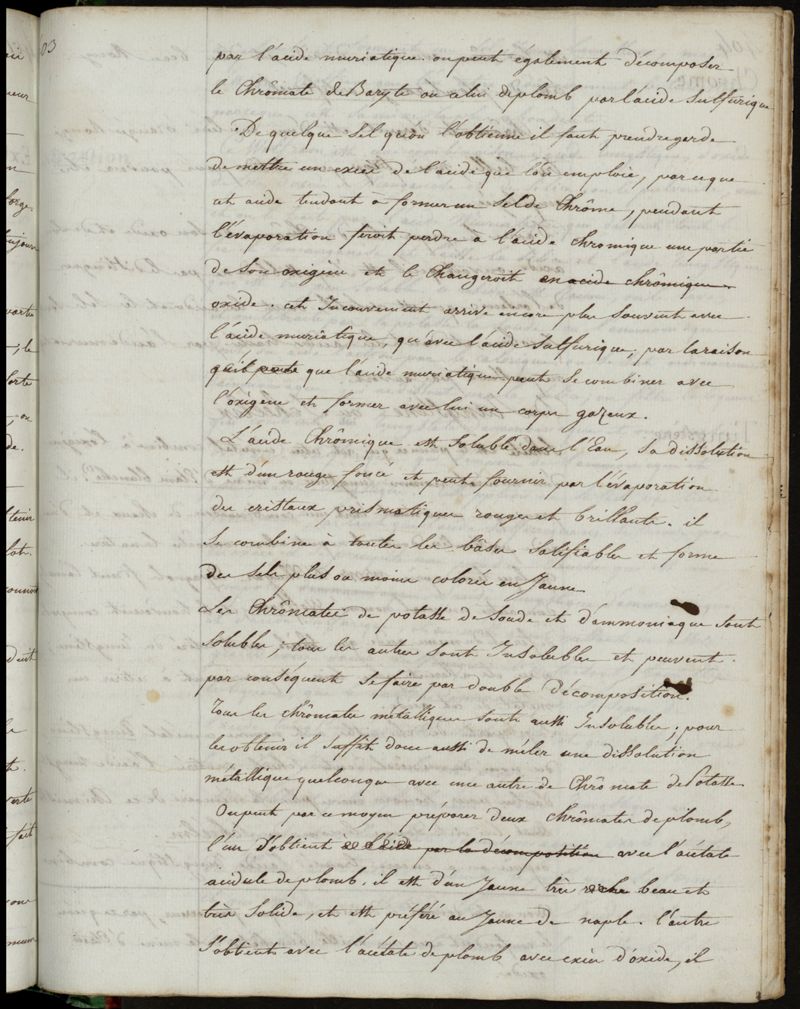 03
par l'acide muriatique. on peut egalement décomposer
le Chrômate de Baryte ou celui de plomb par l'acide sulfurique
De quelque sel qu'on l'obtienne il faut prendre garde
de mettre un excès de l'acide que l'on emploie, parceque
cet acide tendant a former un sel de Chrôme, pendant
l'évaporation feroit perdre à l'acide chromique une partie
de son oxigène et le changeroit en acide chrômique
oxide. cet Inconvenient arrive encore plus souvent avec
l'acide muriatique, qu'avec l'acide sulfurique, par la raison
que l'acide muriatique peut se combiner avec
l'oxigène et former avec lui un corps gazeux.
L'acide Chrômique est soluble dans l'Eau, sa dissolution
est d'un rouge foncé et peut fournir par l'évaporation
des cristaux prismatiques rouges et brillants. il
se combine à toutes les bâses salifiables et forme
des sels plus ou moins colorés en Jaune
Les Chrômates de potasse de soude et d'ammoniaque sont
solubles, tous les autres sont Insolubles et peuvent
par conséquent se faire par double décomposition.
Tous les chrômates métalliques sont aussi Insolubles, pour
les obtenir il suffit donc aussi de mêler une dissolution
métallique quelconque avec une autre de Chrômate de Potasse
On peut par ce moyen préparer deux chrômates de plomb,
l'un s'obtient par la décomposition avec l'acétate
acidule de plomb, il est d'un Jaune très riche beau et
très solide, et est préféré au Jaune de naple. l'autre
s'obtient avec l'acétate de plomb avec excès d'oxide, il